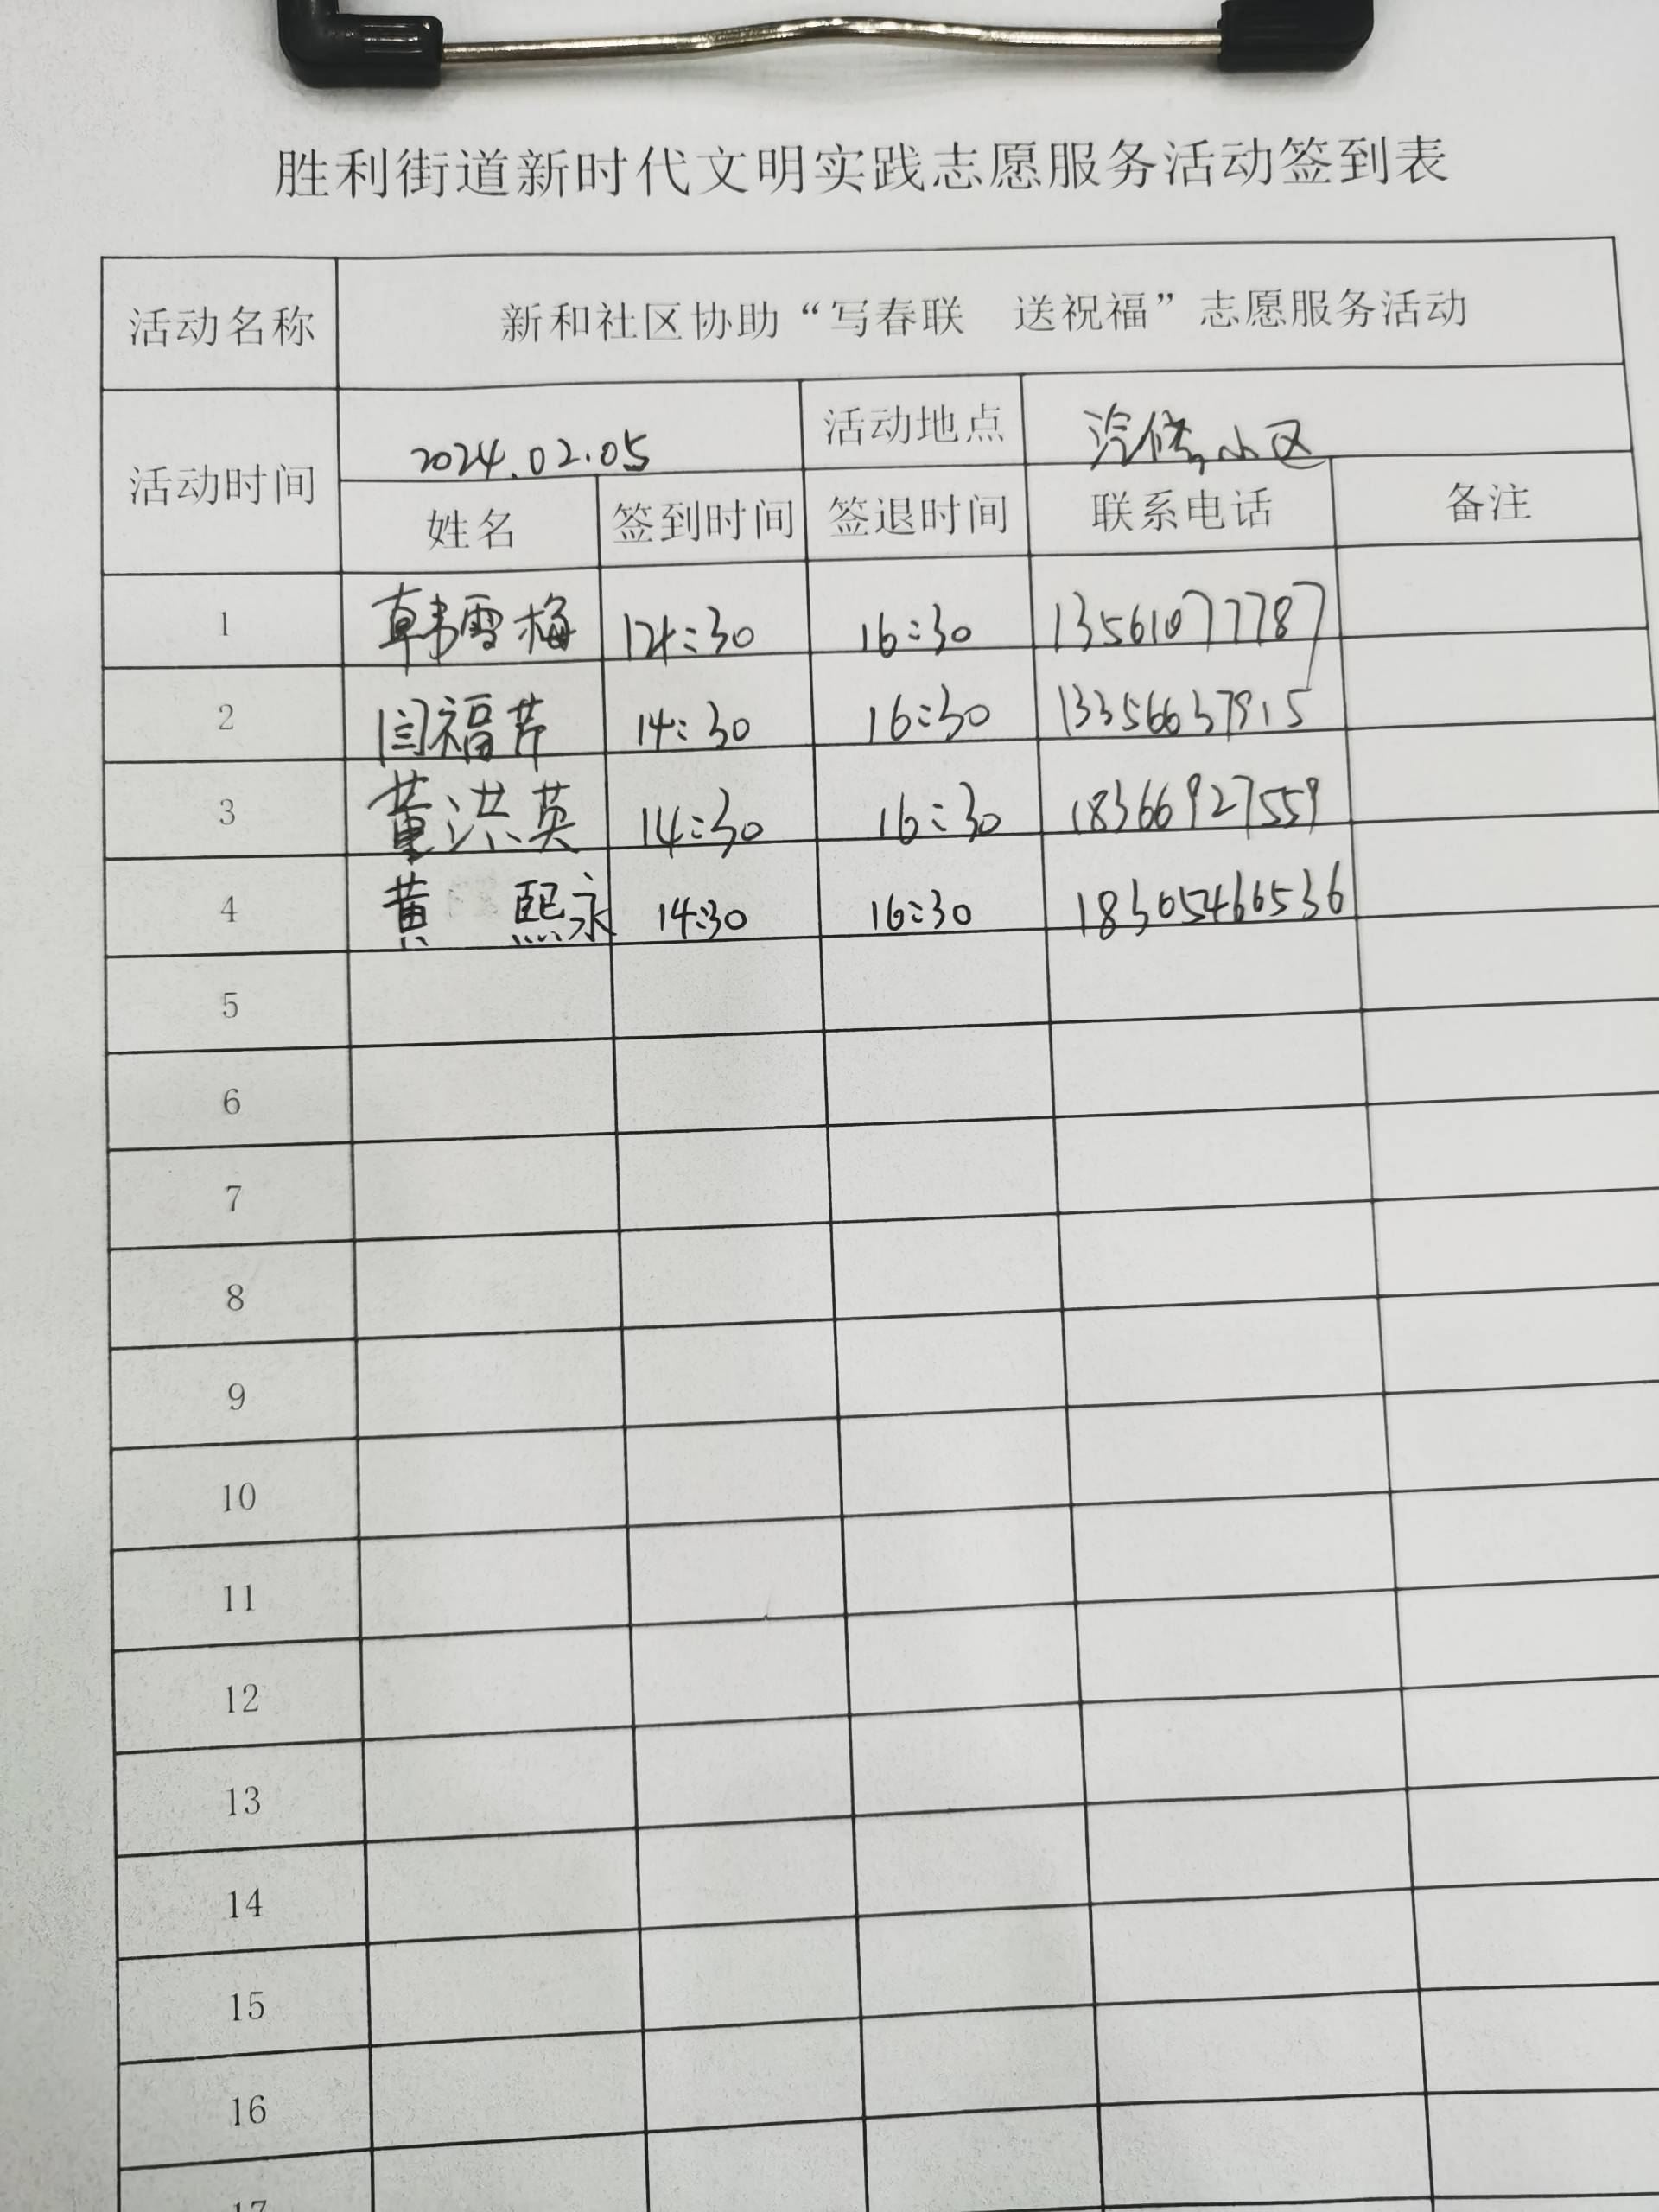 胜利街道新时代文明实践志愿服务活动签到表
活动名称 新和社区协助“写春联 送祝福”志愿服务活动
活动时间 2024.02.05 活动地点 小区
姓名 签到时间 签退时间 联系电话 备注
1 韩雪梅 14:30 16:30 13561077787
2 闫福芹 14:30 16:30 13356637915
3 董洪英 14:30 16:30 18366927559
4 黄熙永 14:30 16:30 18305466536
5
6
7
8
9
10
11
12
13
14
15
16
17